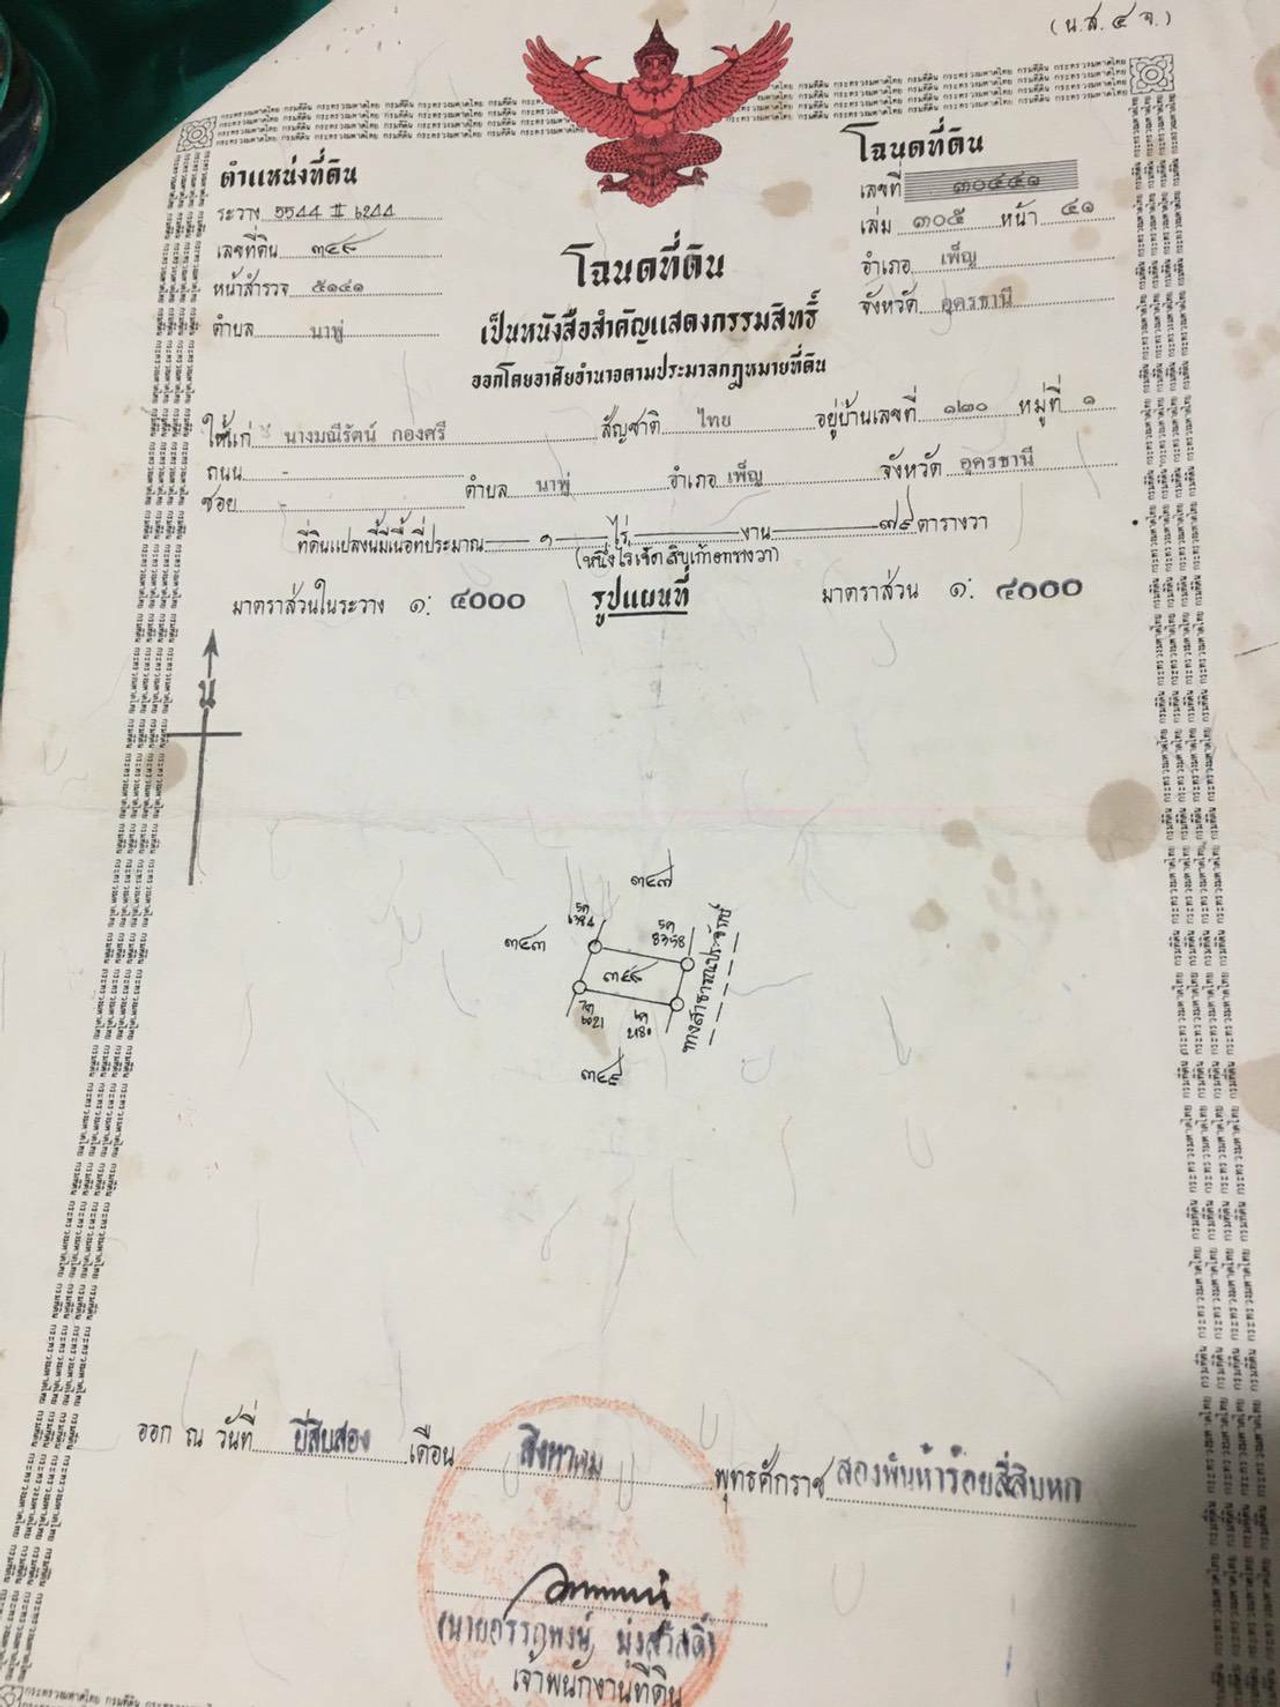 (น.ส. ๔ จ.)
ตำแหน่งที่ดิน
ระวาง 5544 II 6244
เลขที่ดิน ๓๔๘
หน้าสำรวจ ๕๑๔๑
ตำบล นาพู่
โฉนดที่ดิน
เลขที่ ๓๐๔๔๑
เล่ม ๓๐๕ หน้า ๔๑
อำเภอ เพ็ญ
จังหวัด อุดรธานี
โฉนดที่ดิน
เป็นหนังสือสำคัญแสดงกรรมสิทธิ์
ออกโดยอาศัยอำนาจตามประมวลกฎหมายที่ดิน
ให้แก่ นางมณีรัตน์ กองศรี สัญชาติ ไทย อยู่บ้านเลขที่ ๑๒๐ หมู่ที่ ๑
ถนน -
ซอย - ตำบล นาพู่ อำเภอ เพ็ญ จังหวัด อุดรธานี
ที่ดินแปลงนี้มีเนื้อที่ประมาณ ๑ ไร่ - งาน ๗๙ ตารางวา
(หนึ่งไร่เจ็ดสิบเก้าตารางวา)
มาตราส่วนในระวาง ๑: ๔๐๐๐ รูปแผนที่ มาตราส่วน ๑: ๔๐๐๐
น
๓๔๗
๓๔๓
๓๔๘
ทางสาธารณประโยชน์
๓๔๙
ออก ณ วันที่ ยี่สิบสอง เดือน สิงหาคม พุทธศักราช สองพันห้าร้อยสี่สิบหก
เจ้าพนักงานที่ดิน